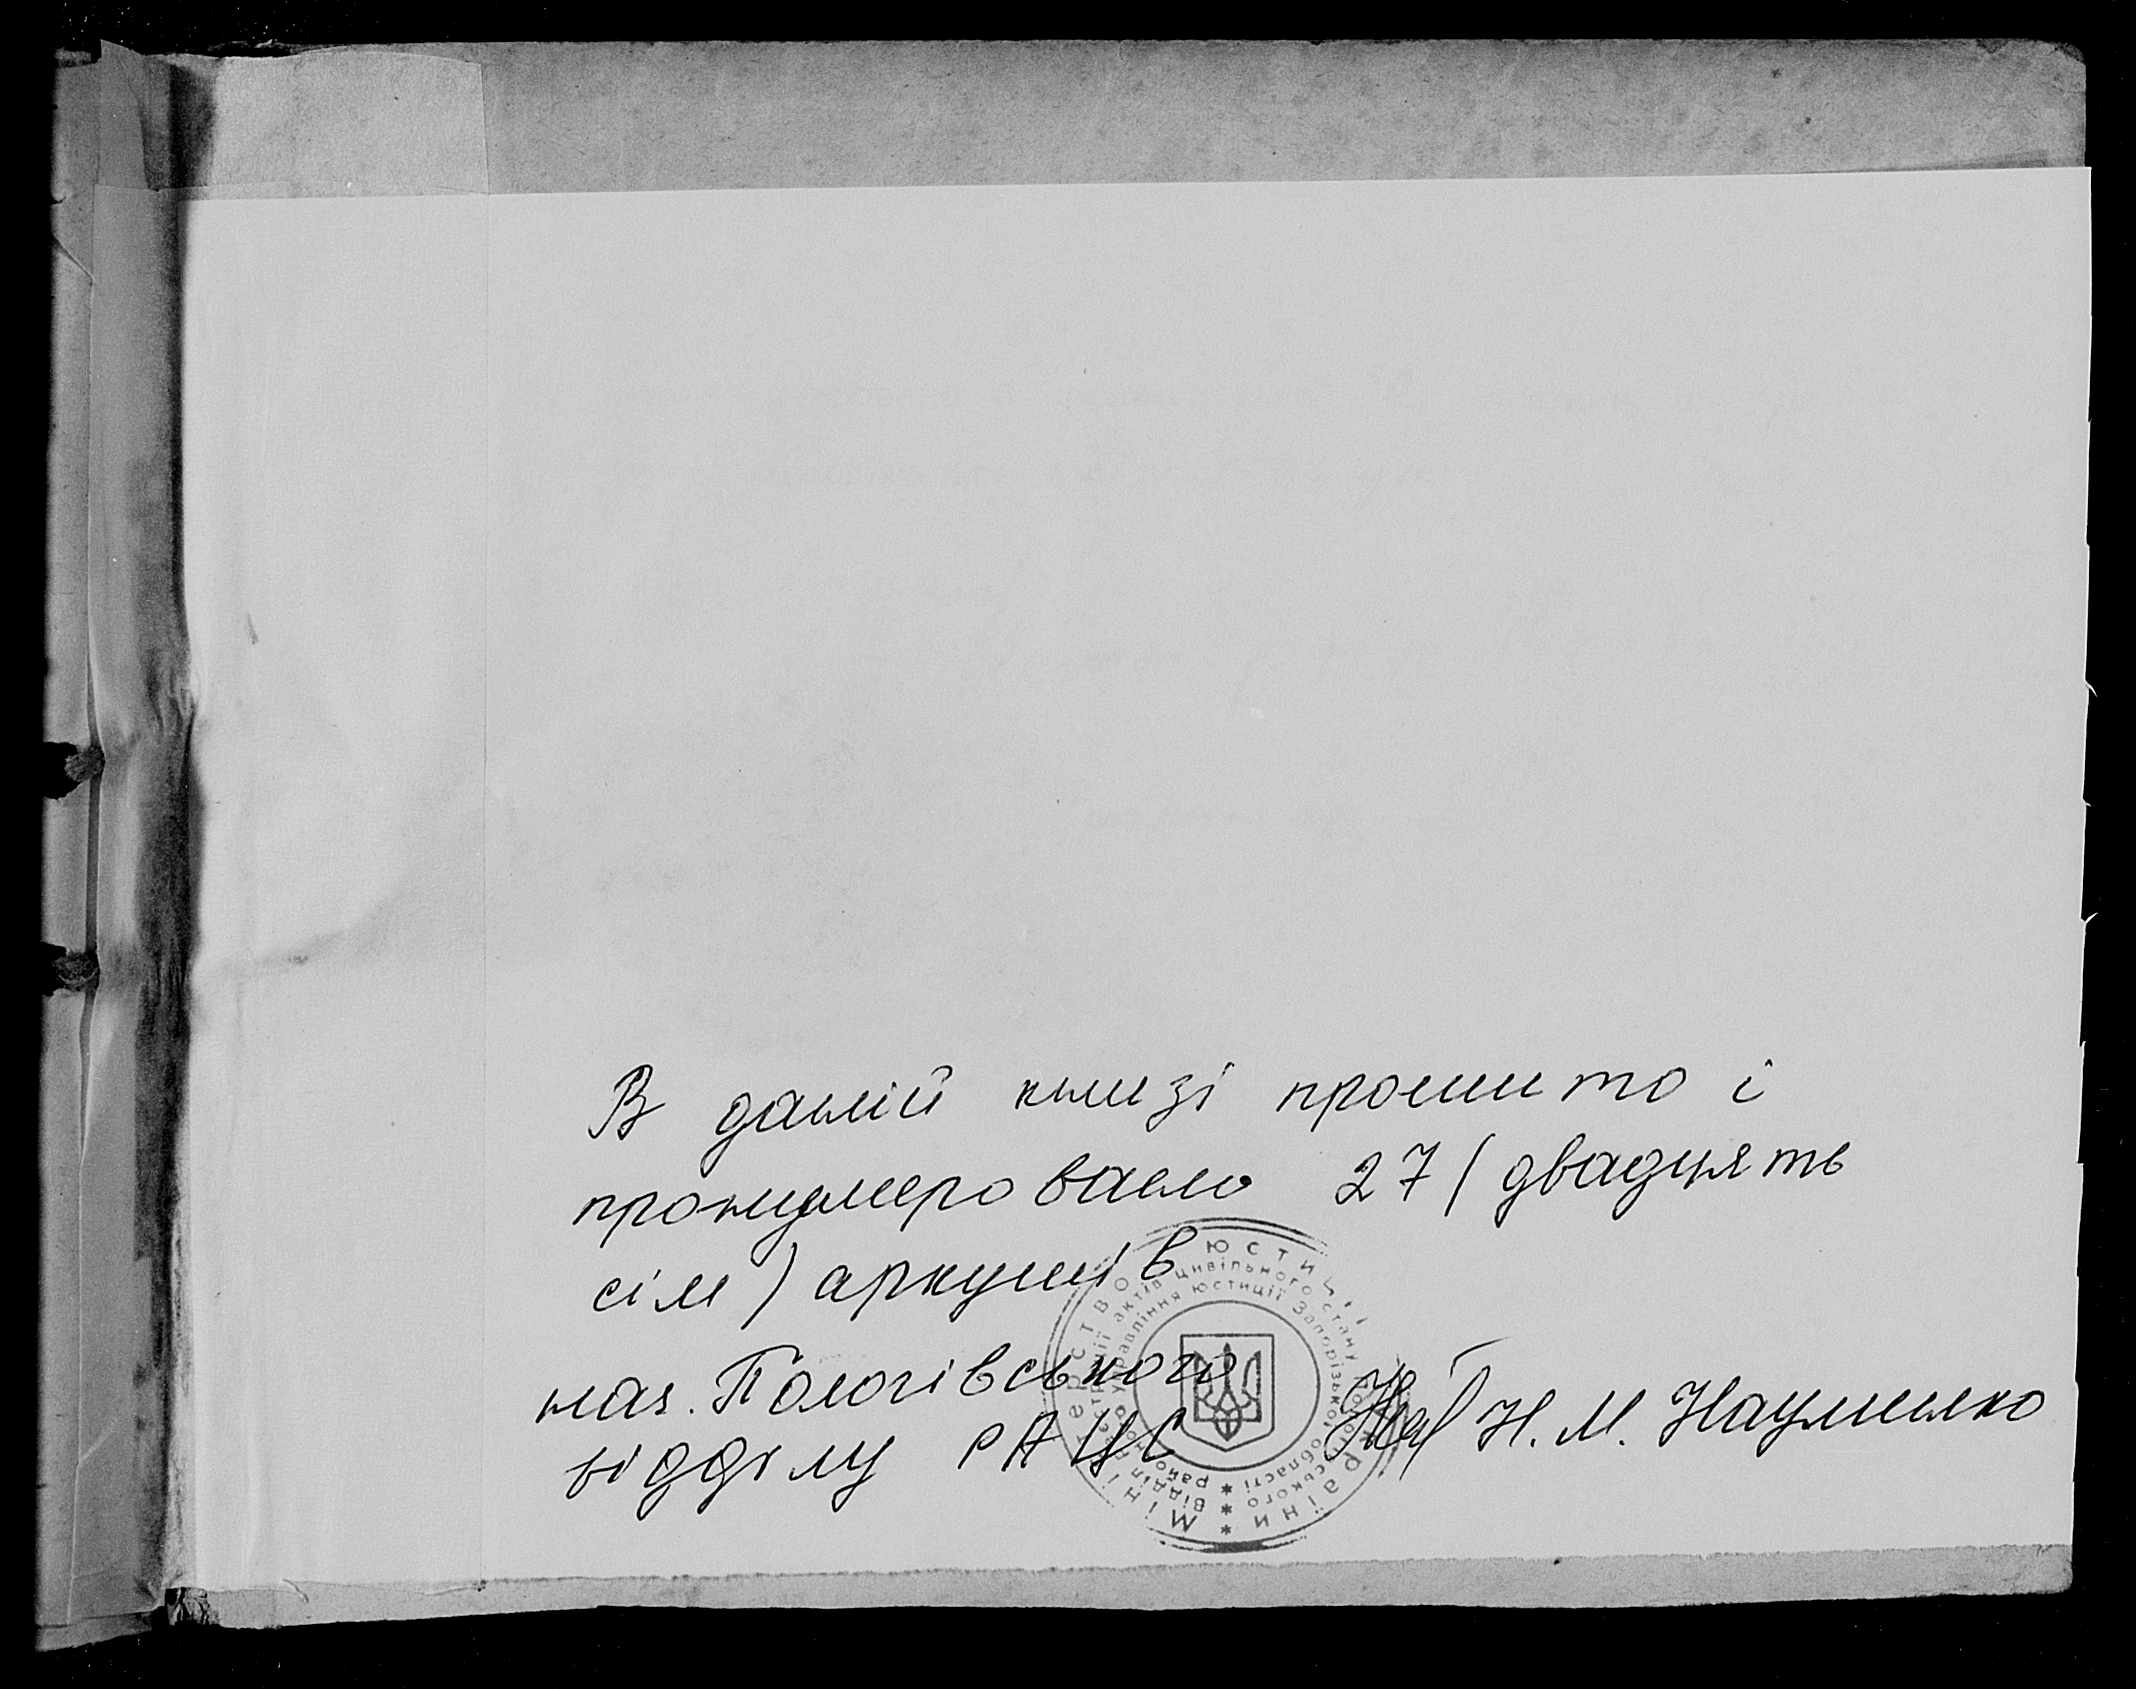 В даній книзі прошито і
пронумеровано 27 (двадцять
сім) аркушів
нач. Пологівського
відділу РАЦС Н. М. Науменко
Міністерство юстиції України
Відділ реєстрації актів цивільного стану Пологівського
районного управління юстиції Запорізької області